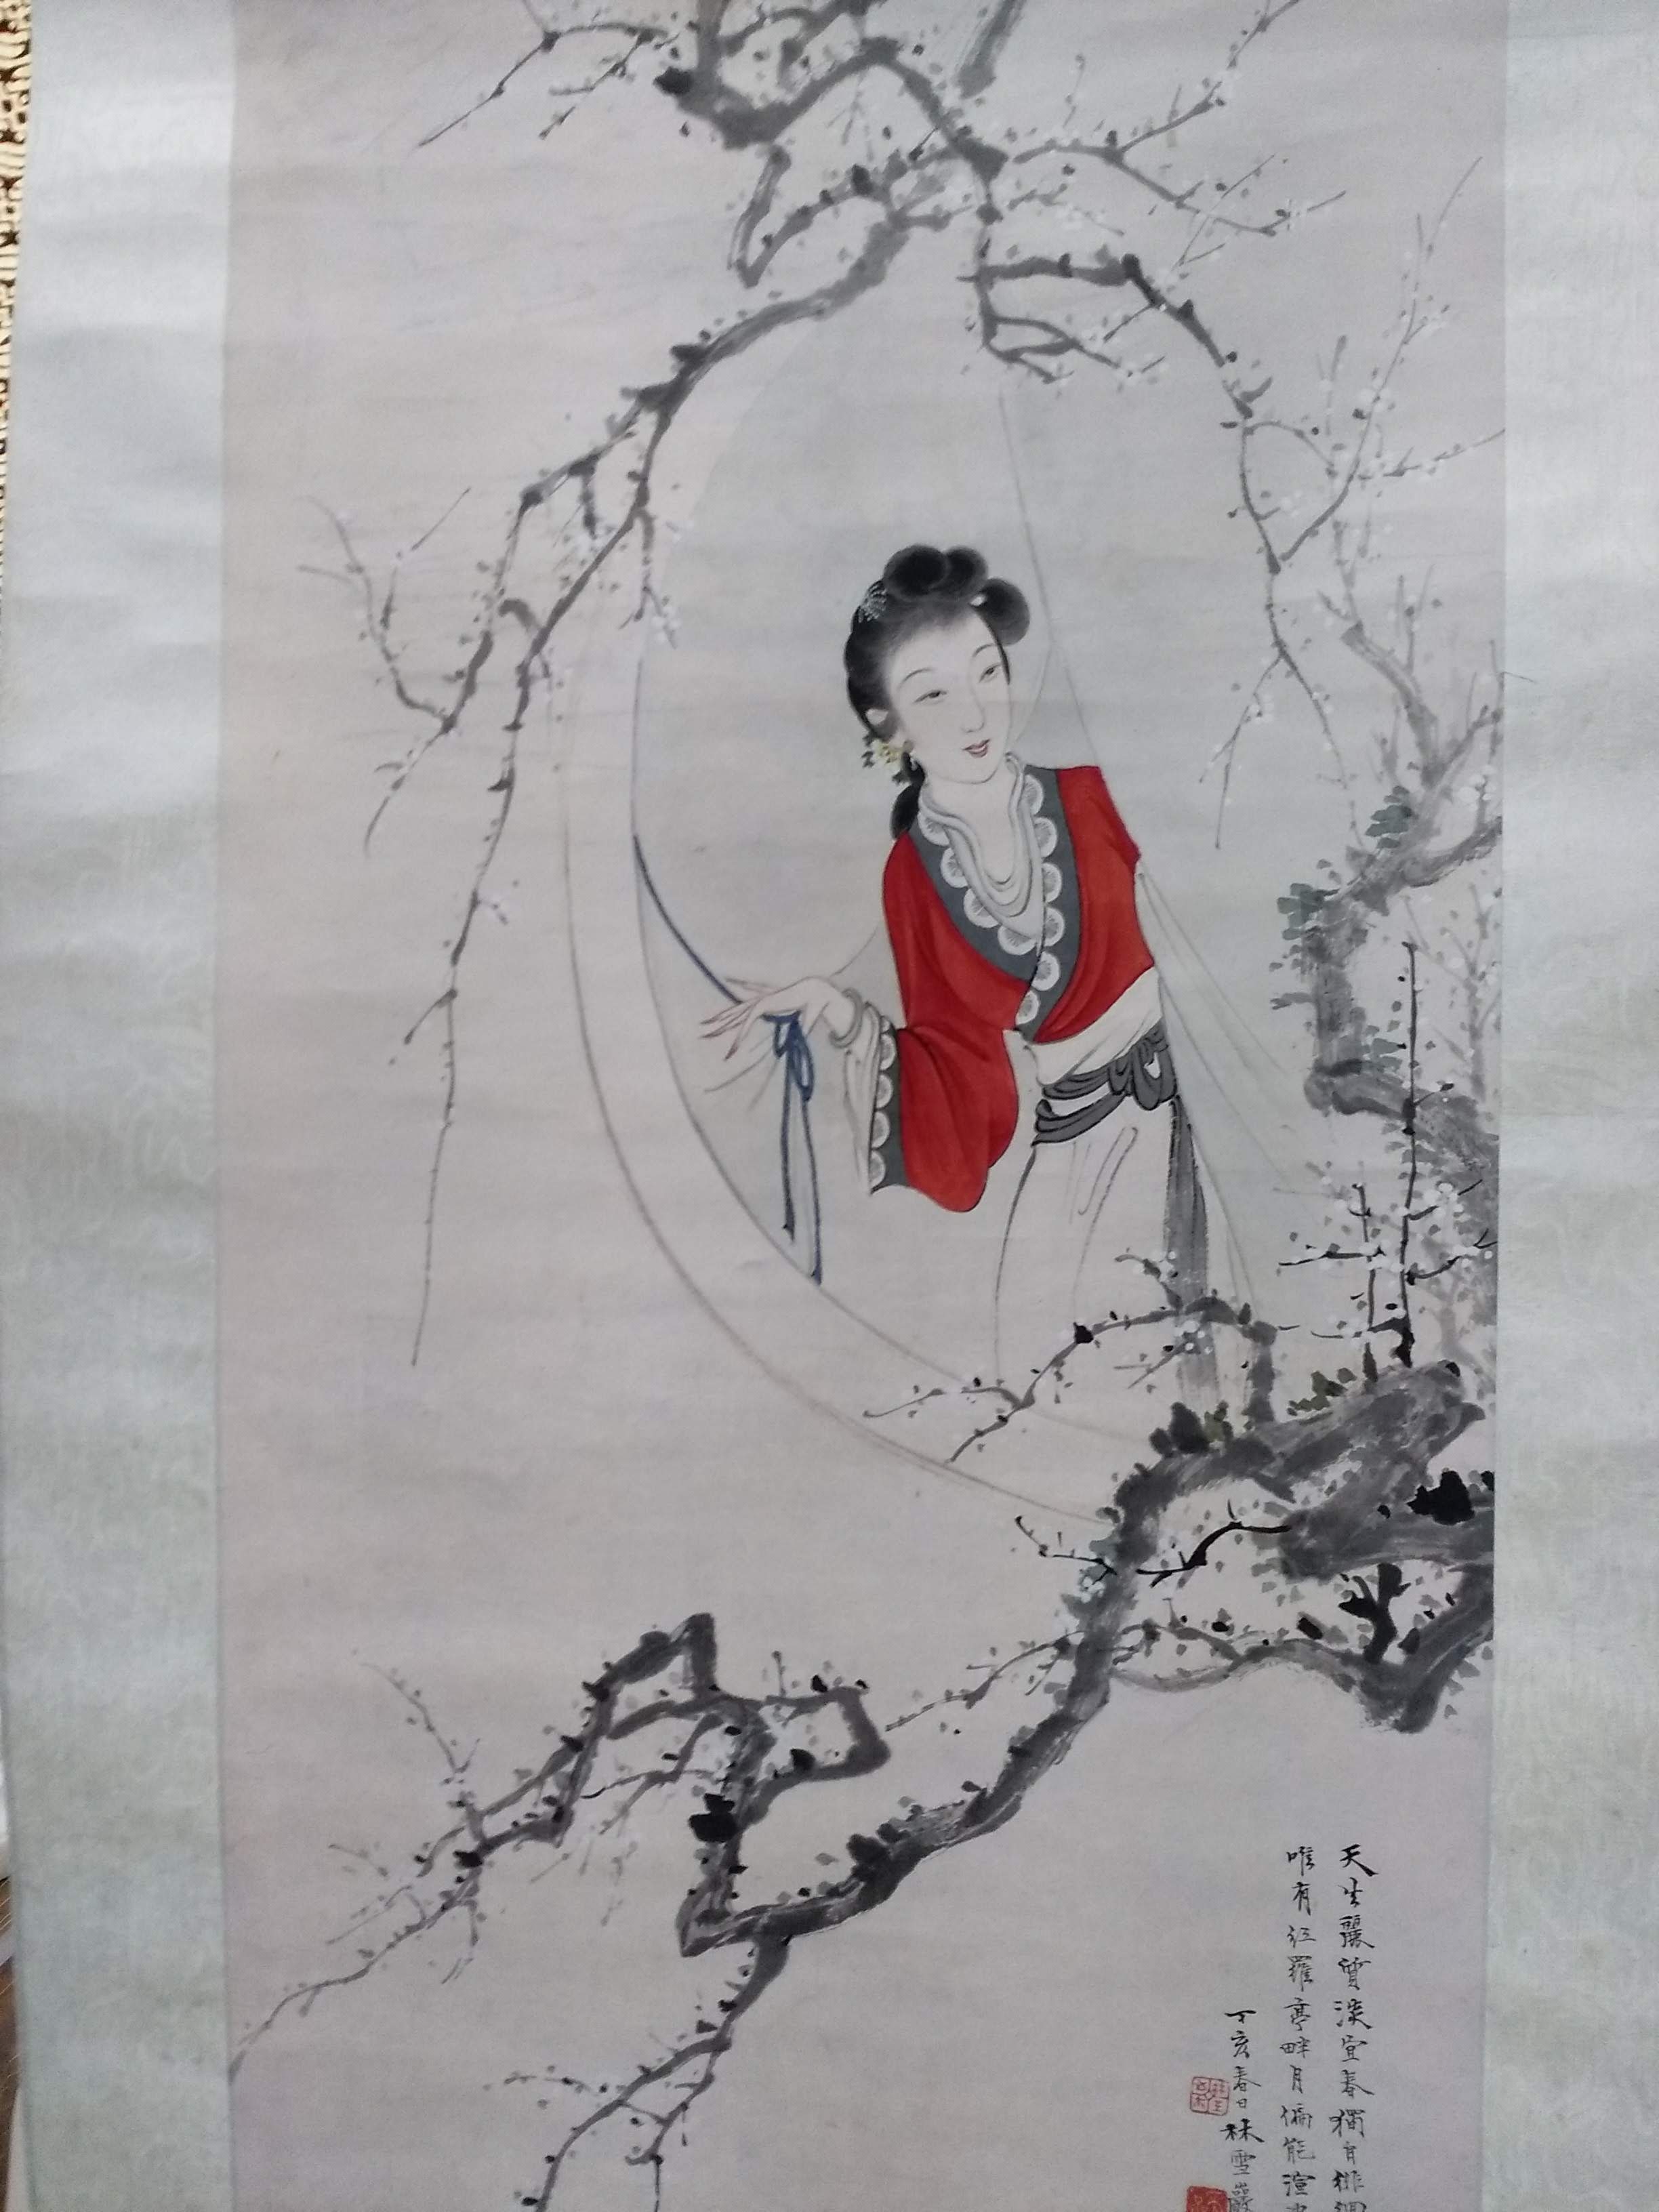 天生麗質淡宜春獨自徘徊
唯有紅羅亭畔月偏能澶
丁亥春日林雪巖